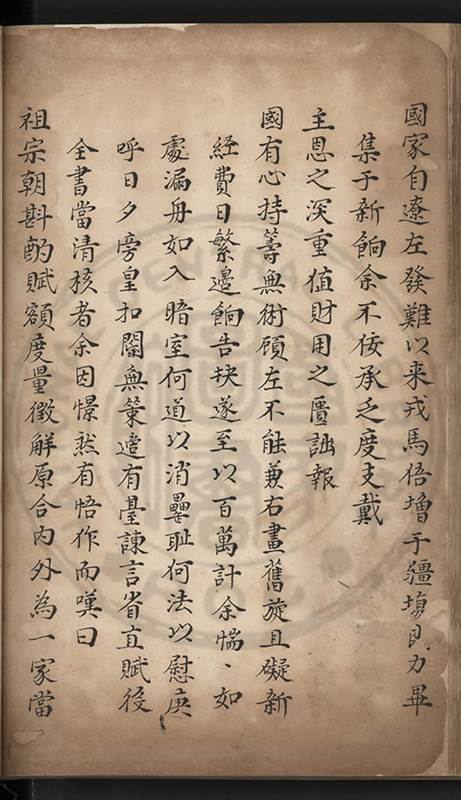 國家自遼左發難以来戎馬倍增于疆埸民力畢
集于新餉余不佞承乏度支戴
主恩之深重值財用之匱詘報
國有心持籌無術顧左不能兼右畫舊旋且礙新
経費日繁邊餉告抉遂至以百萬計余惴、如
處漏舟如入暗室何道以消罍恥何法以慰庚
呼日夕旁皇扣閽無策適有臺諫言省直賦役
全書當清核者余因憬然有悟作而嘆曰
祖宗朝斟酌賦額度量徵解原合內外為一家當